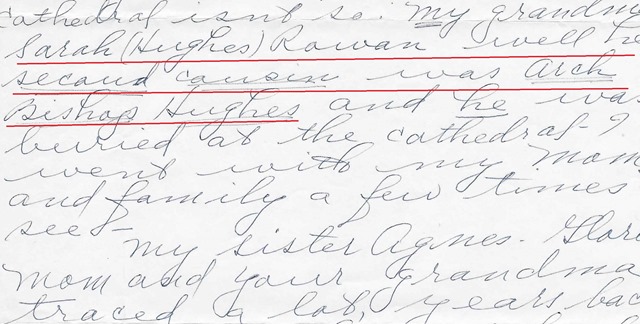 cathedral isn't so. My grandm
Sarah (Hughes) Rowan well he
second cousin was Arch
Bishop Hughes and he was
buried at the cathedral - I
went with my Mom
and family a few times
see -
My sister Agnes - Glori
Mom and your grandma
traced a lot, years bac